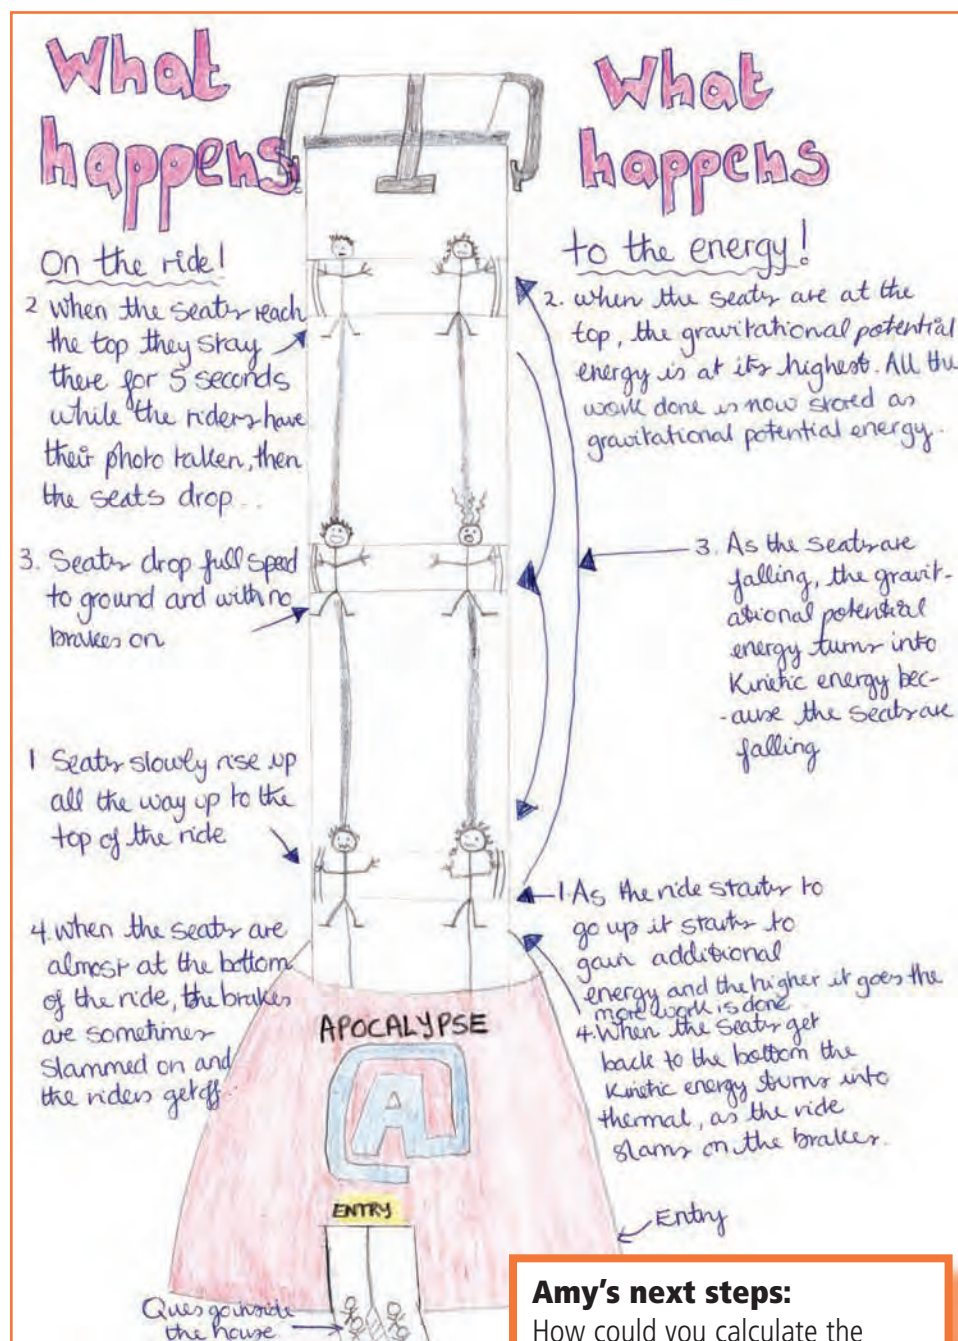 What
happens
On the ride!
2 When the seats reach
the top they stay
there for 5 seconds
while the riders have
their photo taken, then
the seats drop...
3. Seats drop full speed
to ground and with no
brakes on
1 Seats slowly rise up
all the way up to the
top of the ride
4. when the seats are
almost at the bottom
of the ride, the brakes
are sometimes
slammed on and
the riders get off..
What
happens
to the energy!
2. when the seats are at the
top, the gravitational potential
energy is at its highest. All the
work done is now stored as
gravitational potential energy.
3. As the seats are
falling, the gravit-
ational potential
energy turns into
Kinetic energy bec-
-ause the seats are
falling
1. As the ride starts to
go up it starts to
gain additional
energy and the higher it goes the
more work is done.
4. When the seats get
back to the bottom the
Kinetic energy turns into
thermal, as the ride
slams on the brakes.
APOCALYPSE
A
ENTRY
Entry
Ques go inside
the house
Amy's next steps:
How could you calculate the